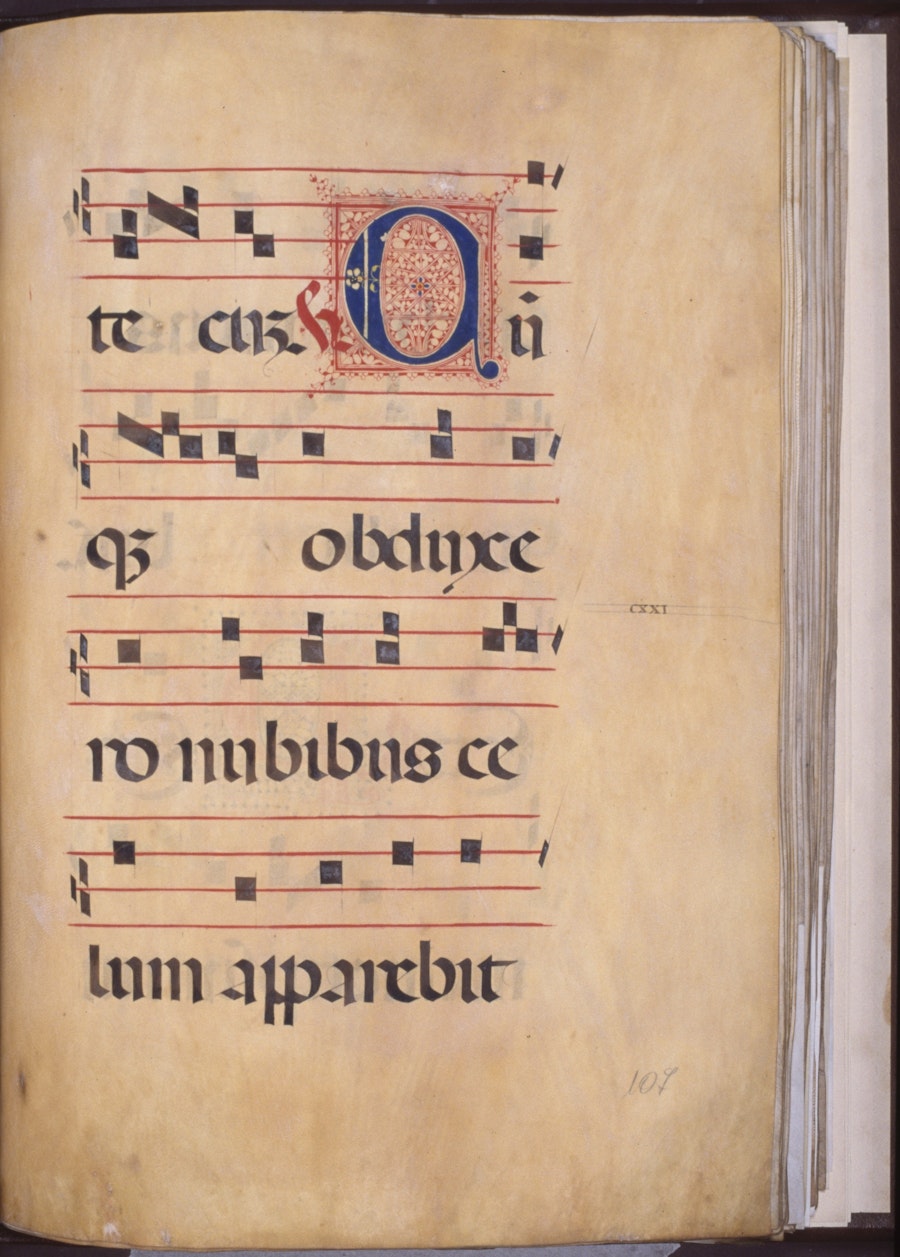 te cuz. V Cū
qz obduxe
ro nubibus ce
CXXI
lum apparebit
107